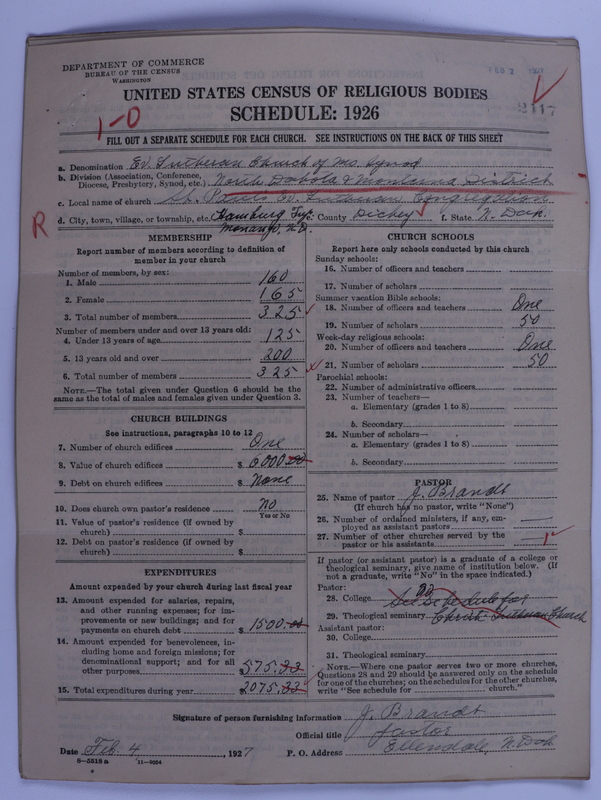 DEPARTMENT OF COMMERCE
BUREAU OF THE CENSUS
WASHINGTON
FEB 2 1927
2117
UNITED STATES CENSUS OF RELIGIOUS BODIES
SCHEDULE: 1926
1-0
FILL OUT A SEPARATE SCHEDULE FOR EACH CHURCH. SEE INSTRUCTIONS ON THE BACK OF THIS SHEET
a. Denomination Ev. Lutheran Church of Mo. Synod
b. Division (Association, Conference, Diocese, Presbytery, Synod, etc.) North Dakota & Montana District
c. Local name of church St. Pauls Ev. Lutheran Congregation
d. City, town, village, or township, etc. Hamburg Twp. County Dickey f. State N. Dak.
Monango, N.D.
R
MEMBERSHIP
Report number of members according to definition of
member in your church
Number of members, by sex:
1. Male 160
2. Female 165
3. Total number of members 325
Number of members under and over 13 years old:
4. Under 13 years of age 125
5. 13 years old and over 200
6. Total number of members 325
NOTE.—The total given under Question 6 should be
same as the total of males and females given under Question 3.
CHURCH BUILDINGS
See instructions, paragraphs 10 to 12
7. Number of church edifices One
8. Value of church edifices $ 6000.00
9. Debt on church edifices $ None
10. Does church own pastor's residence No
Yes or No
11. Value of pastor's residence (if owned by
church) $
12. Debt on pastor's residence (if owned by
church) $
EXPENDITURES
Amount expended by your church during last fiscal year
13. Amount expended for salaries, repairs,
and other running expenses; for im-
provements or new buildings; and for
payments on church debt $ 1500.00
14. Amount expended for benevolences, in-
cluding home and foreign missions; for
denominational support; and for all
other purposes $ 575.33
15. Total expenditures during year $ 2075.33
CHURCH SCHOOLS
Report here only schools conducted by this church
Sunday schools:
16. Number of officers and teachers
17. Number of scholars
Summer vacation Bible schools:
18. Number of officers and teachers One
19. Number of scholars 50
Week-day religious schools:
20. Number of officers and teachers One
21. Number of scholars 50
Parochial schools:
22. Number of administrative officers
23. Number of teachers—
a. Elementary (grades 1 to 8)
b. Secondary
24. Number of scholars—
a. Elementary (grades 1 to 8)
b. Secondary
PASTOR
25. Name of pastor J. Brandt
(If church has no pastor, write "None")
26. Number of ordained ministers, if any, em-
ployed as assistant pastors
27. Number of other churches served by the
pastor or his assistants 1
If pastor (or assistant pastor) is a graduate of a college or
theological seminary, give name of institution below. (If
not a graduate, write "No" in the space indicated.)
Pastor:
28. College See schedule for
29. Theological seminary Christ Lutheran Church
Assistant pastor:
30. College
31. Theological seminary
NOTE.—Where one pastor serves two or more churches,
Questions 28 and 29 should be answered only on the schedule
for one of the churches; on the schedules for the other churches,
write "See schedule for church."
Signature of person furnishing information J. Brandt
Official title Pastor
Date Feb. 4, 1927 P. O. Address Ellendale, N. Dak.
8-5518a 11-9264